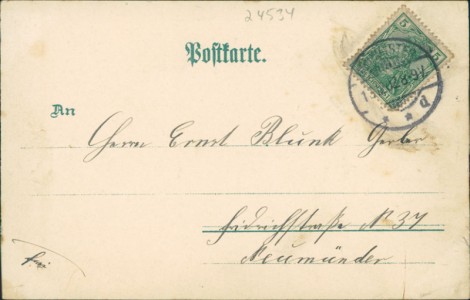 24594
Postkarte.
5 5
An
Herrn Ernst Blunk Gerber
Fridrichstraße No 37
Neumünder